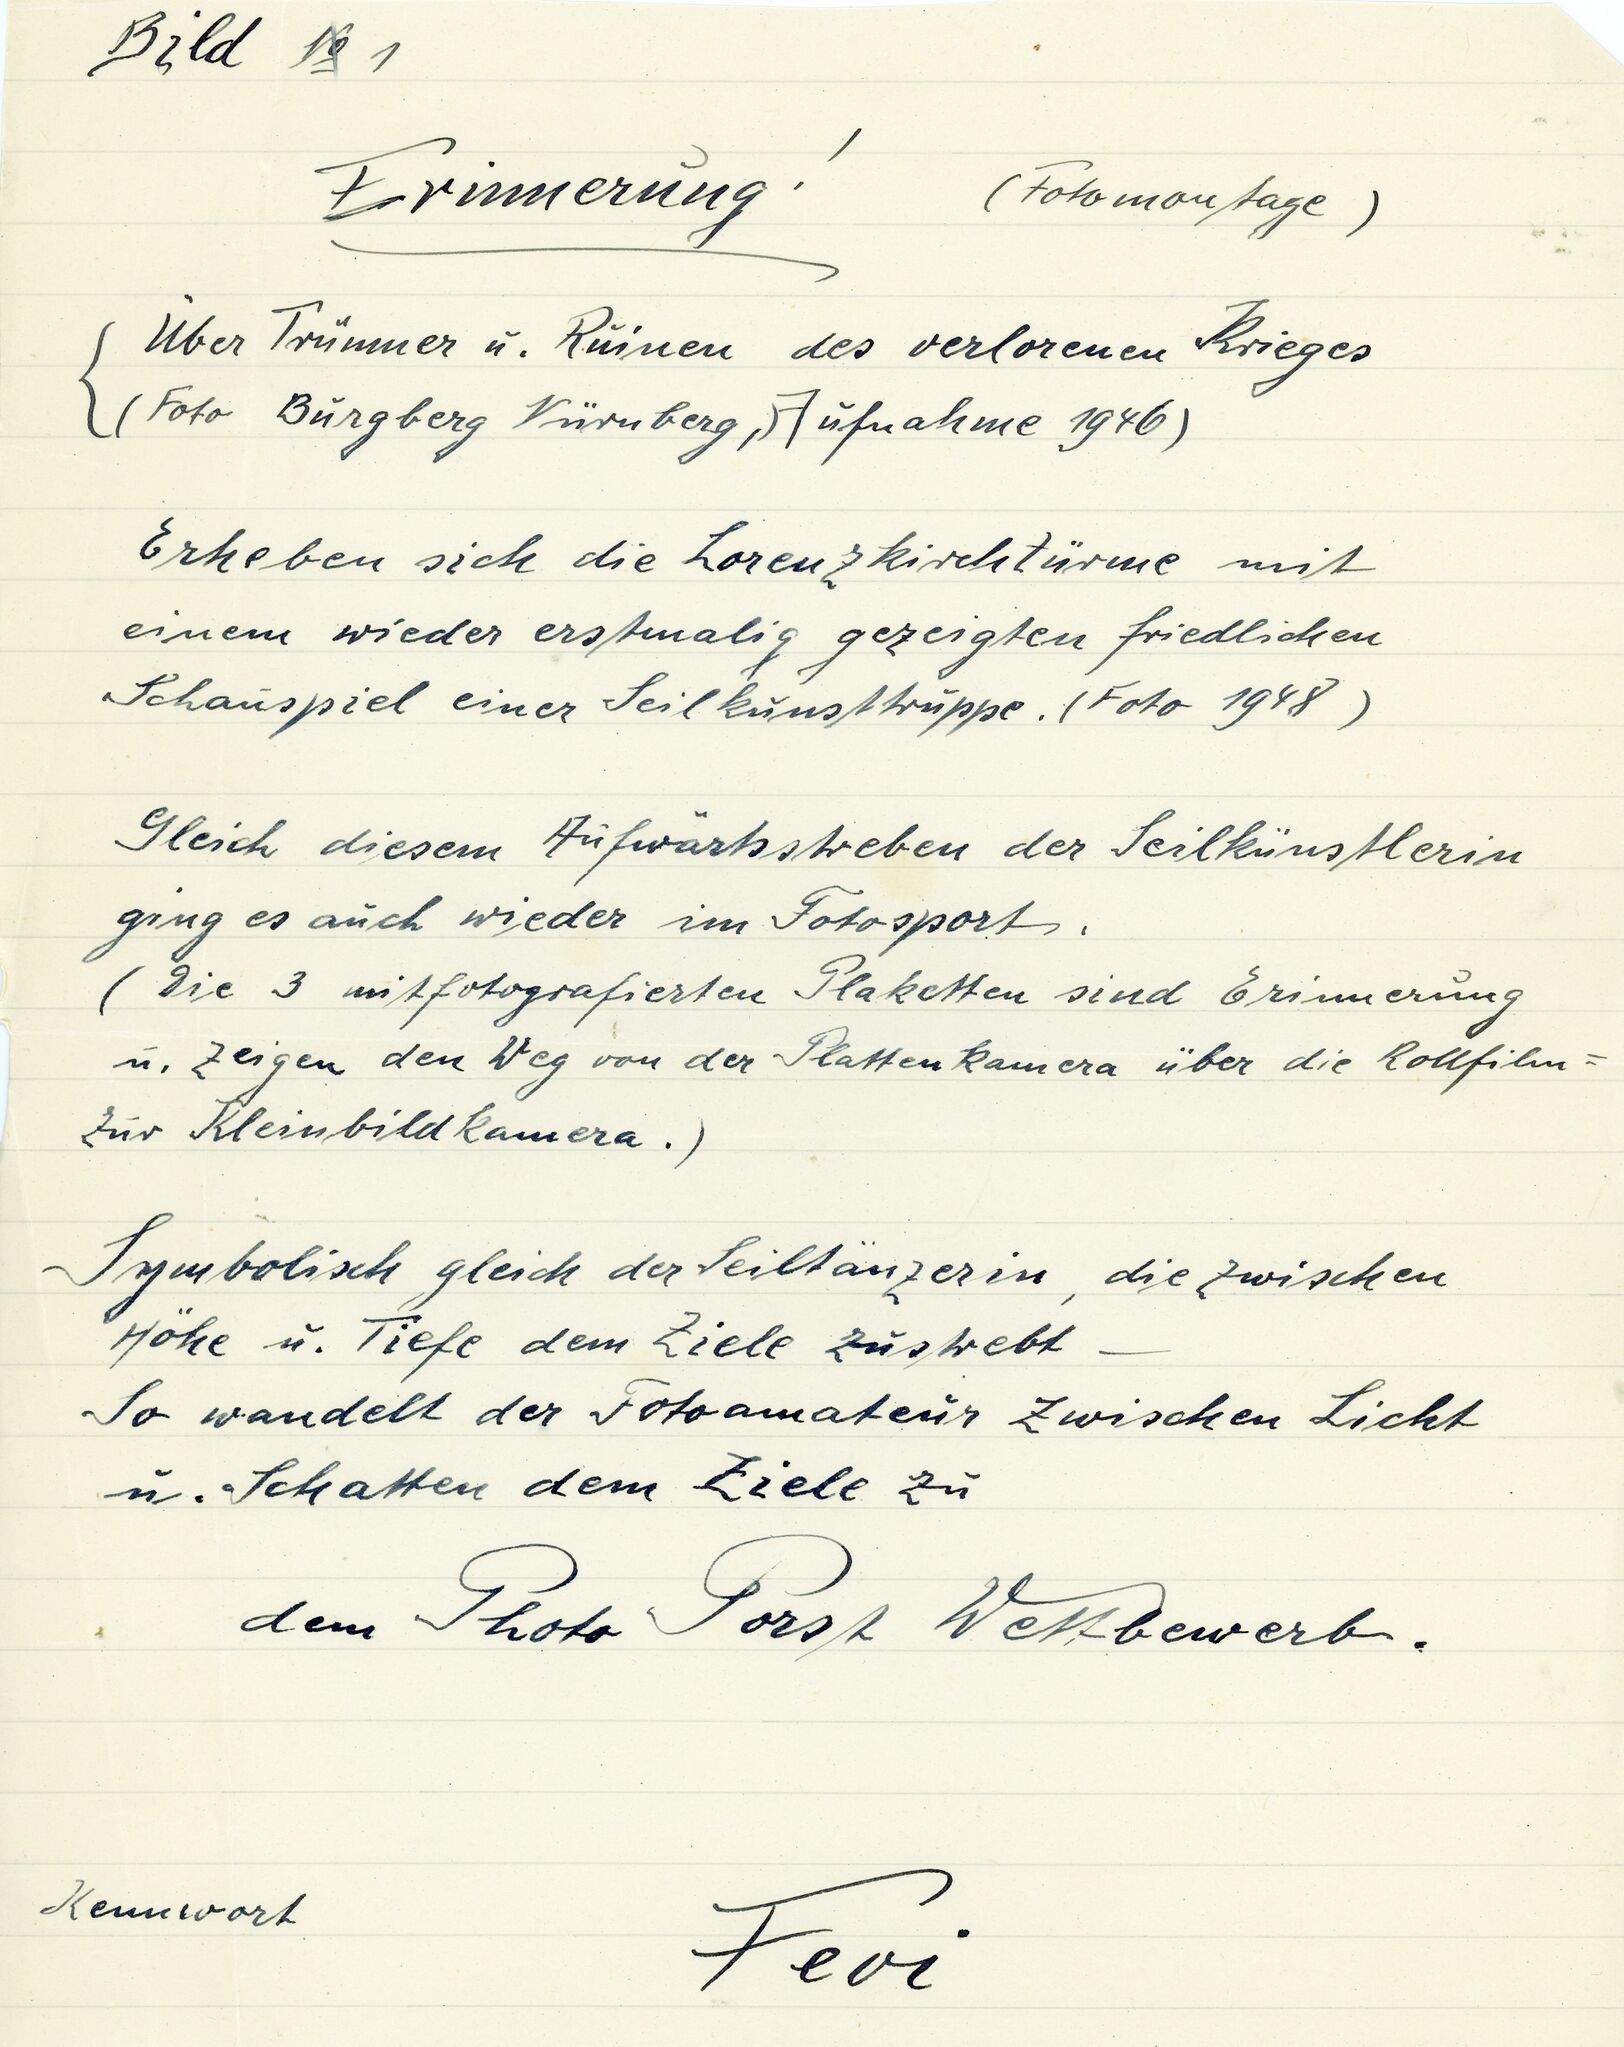 Bild 1
Erinnerung! (Fotomontage)
Über Trümmer u. Ruinen des verlorenen Krieges
(Foto Burgberg Nürnberg, Aufnahme 1946)
Erheben sich die Lorenzkirchtürme mit
einem wieder erstmalig gezeigten friedlichen
Schauspiel einer Seilkunsttruppe. (Foto 1948)
Gleich diesem Aufwärtsstreben der Seilkünstlerin
ging es auch wieder im Fotosport.
(Die 3 mitfotografierten Plaketten sind Erinnerung
u. zeigen den Weg von der Plattenkamera über die Rollfilm=
zur Kleinbildkamera.)
Symbolisch gleich der Seiltänzerin, die zwischen
Höhe u. Tiefe dem Ziele zustrebt —
So wandelt der Fotoamateur zwischen Licht
u. Schatten dem Ziele zu
dem Photo Porst Wettbewerb.
Kennwort Fevi